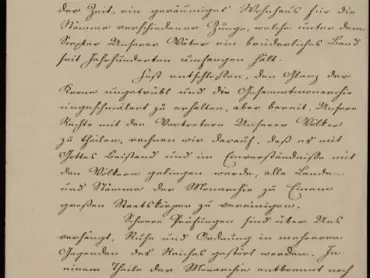 der Zeit, ein geräumiges Wohnhaus für die
Stämme verschiedener Zunge, welche unter dem
Scepter Unserer Väter ein brüderliches Band
seit Jahrhunderten umfangen hält.
Fest entschlossen, den Glanz der
Krone ungetrübt und die Gesammtmonarchie
ungeschmälert zu erhalten, aber bereit, Unsere
Rechte mit den Vertretern Unserer Völker
zu theilen, rechnen wir darauf, daß es mit
Gottes Beistand und im Einverständnisse mit
den Völkern gelingen werde, alle Lande
und Stämme der Monarchie zu Einem
großen Staatskörper zu vereinigen.
Schwere Prüfungen sind über Uns
verhängt, Ruhe und Ordnung in mehreren
Gegenden des Reiches gestört worden. In
einem Theile der Monarchie entbrennt noch